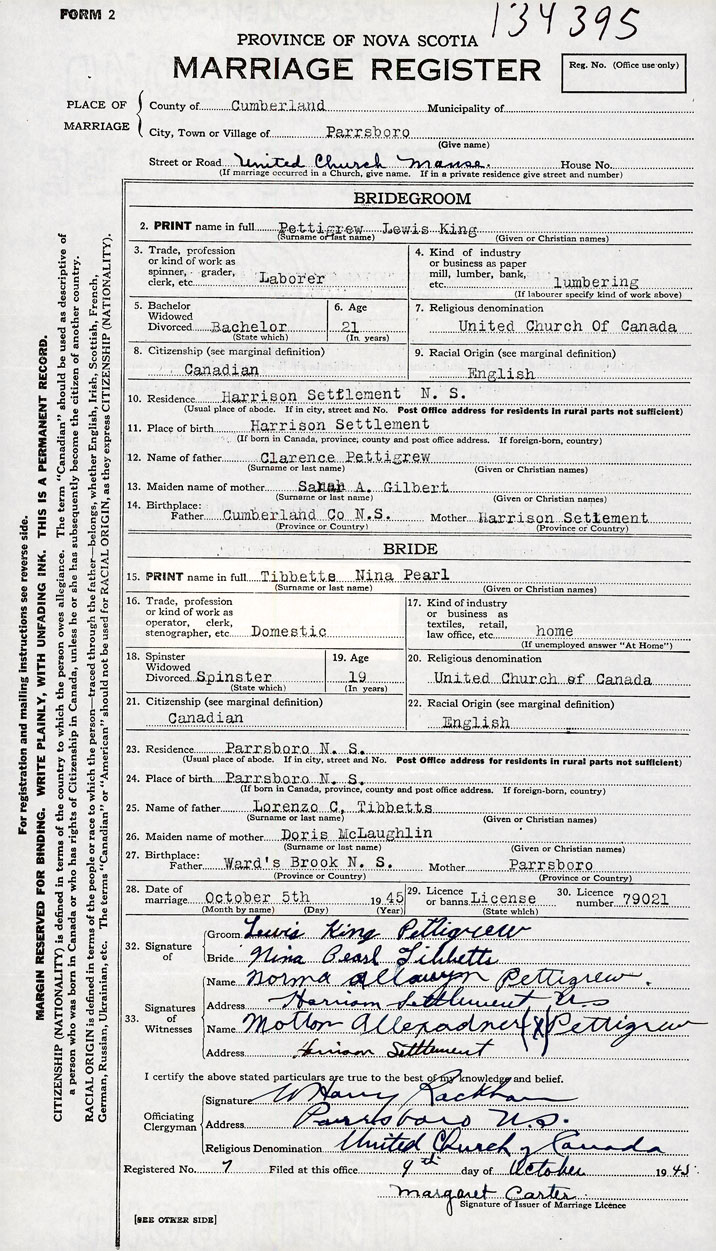 FORM 2
134395
PROVINCE OF NOVA SCOTIA
MARRIAGE REGISTER
Reg. No. (Office use only)
PLACE OF MARRIAGE
County of Cumberland Municipality of
City, Town or Village of Parrsboro
(Give name)
Street or Road United Church Manse. House No.
(If marriage occurred in a Church, give name. If in a private residence give street and number)
BRIDEGROOM
2. PRINT name in full Pettigrew Lewis King
(Surname or last name) (Given or Christian names)
3. Trade, profession or kind of work as spinner, grader, clerk, etc. Laborer
4. Kind of industry or business as paper mill, lumber, bank, etc. lumbering
(If labourer specify kind of work above)
5. Bachelor Widowed Divorced Bachelor
(State which)
6. Age 21
(In years)
7. Religious denomination United Church Of Canada
8. Citizenship (see marginal definition) Canadian
9. Racial Origin (see marginal definition) English
10. Residence Harrison Settlement N. S.
(Usual place of abode. If in city, street and No. Post Office address for residents in rural parts not sufficient)
11. Place of birth Harrison Settlement
(If born in Canada, province, county and post office address. If foreign-born, country)
12. Name of father Clarence Pettigrew
(Surname or last name) (Given or Christian names)
13. Maiden name of mother Sarah A. Gilbert
(Surname or last name) (Given or Christian names)
14. Birthplace: Father Cumberland Co N.S. Mother Harrison Setlement
(Province or Country) (Province or Country)
BRIDE
15. PRINT name in full Tibbetts Nina Pearl
(Surname or last name) (Given or Christian names)
16. Trade, profession or kind of work as operator, clerk, stenographer, etc Domestic
17. Kind of industry or business as textiles, retail, law office, etc. home
(If unemployed answer "At Home")
18. Spinster Widowed Divorced Spinster
(State which)
19. Age 19
(In years)
20. Religious denomination United Church of Canada
21. Citizenship (see marginal definition) Canadian
22. Racial Origin (see marginal definition) English
23. Residence Parrsboro N. S.
(Usual place of abode. If in city, street and No. Post Office address for residents in rural parts not sufficient)
24. Place of birth Parrsboro N. S.
(If born in Canada, province, county and post office address. If foreign-born, country)
25. Name of father Lorenzo C. Tibbetts
(Surname or last name) (Given or Christian names)
26. Maiden name of mother Doris McLaughlin
(Surname or last name) (Given or Christian names)
27. Birthplace: Father Ward's Brook N. S. Mother Parrsboro
(Province or Country) (Province or Country)
28. Date of marriage October 5th 1945
(Month by name) (Day) (Year)
29. Licence or banns License
(State which)
30. Licence number 79021
32. Signature of
Groom Lewis King Pettigrew
Bride Nina Pearl Tibbetts
33. Signatures of Witnesses
Name Norma Pettigrew.
Address Harrison Settlement N S
Name Motton Allexadner (X) Pettigrew
Address Harrison Settlement
I certify the above stated particulars are true to the best of my knowledge and belief.
Officiating Clergyman
Signature W Harry Rackham
Address Parrsboro N.S.
Religious Denomination United Church of Canada
Registered No. 7 Filed at this office 9th day of October 1945
Margaret Carter
Signature of Issuer of Marriage Licence
[SEE OTHER SIDE]
For registration and mailing instructions see reverse side.
MARGIN RESERVED FOR BINDING. WRITE PLAINLY, WITH UNFADING INK. THIS IS A PERMANENT RECORD.
CITIZENSHIP (NATIONALITY) is defined in terms of the country to which the person owes allegiance. The term "Canadian" should be used as descriptive of
a person who was born in Canada or who has rights of Citizenship in Canada, unless he or she has subsequently become the citizen of another country.
RACIAL ORIGIN is defined in terms of the people or race to which the person—traced through the father—belongs, whether English, Irish, Scottish, French,
German, Russian, Ukrainian, etc. The terms "Canadian" or "American" should not be used for RACIAL ORIGIN, as they express CITIZENSHIP (NATIONALITY).